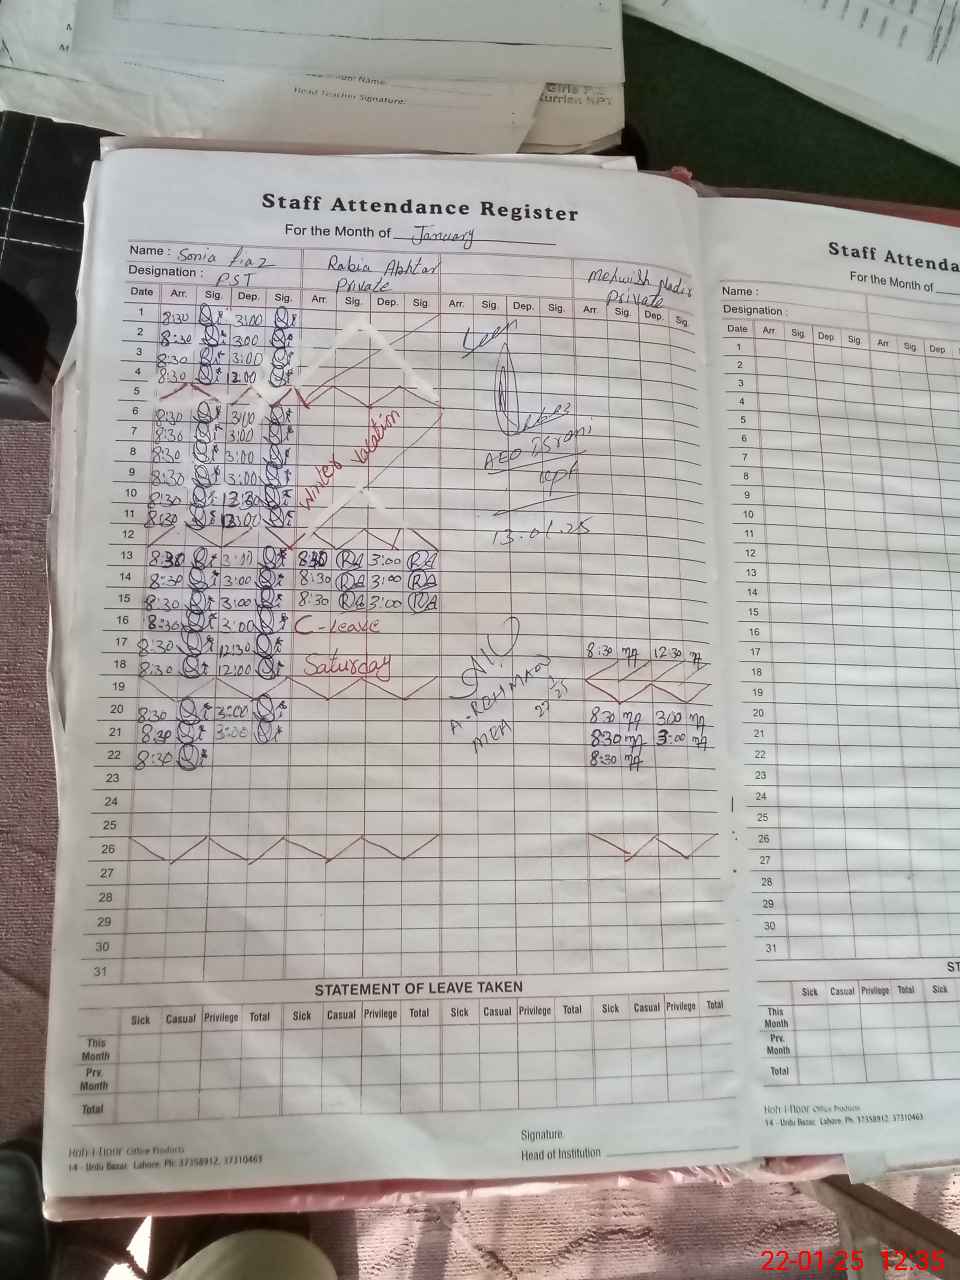 Name:
Head Teacher Signature:
Staff Attendance Register
For the Month of January
Name : Sonia Riaz Rabia Akhtar Mehwish Nadir
Designation : PST Private Private
Date Arr. Sig. Dep. Sig. Arr. Sig. Dep. Sig. Arr. Sig. Dep. Sig. Arr. Sig. Dep. Sig.
1 8:30 3:00
2 8:30 3:00
3 8:30 3:00
4 8:30 12:00
5
6 8:30 3:00
7 8:30 3:00
8 8:30 3:00
9 8:30 3:00
10 8:30 12:30
11 8:30 12:00
12
Winter Vacation
Seen
AEO
13.01.25
13 8:30 3:00 8:30 RA 3:00 RA
14 8:30 3:00 8:30 RA 3:00 RA
15 8:30 3:00 8:30 RA 3:00 RA
16 8:30 3:00 C-Leave
17 8:30 12:30 8:30 MA 12:30 MA
18 8:30 12:00 Saturday
19
A-REHMAN
MEA
20 8:30 3:00 8:30 MA 3:00 MA
21 8:30 3:00 8:30 MA 3:00 MA
22 8:30 8:30 MA
23
24
25
26
27
28
29
30
31
STATEMENT OF LEAVE TAKEN
Sick Casual Privilege Total Sick Casual Privilege Total Sick Casual Privilege Total Sick Casual Privilege Total
This Month
Prv. Month
Total
Signature
Head of Institution
Koh-i-noor Office Products
14 - Urdu Bazar, Lahore. Ph: 37358912, 37310463
Staff Attenda
For the Month of
Name :
Designation :
Date Arr. Sig. Dep. Sig. Arr. Sig. Dep
1
2
3
4
5
6
7
8
9
10
11
12
13
14
15
16
17
18
19
20
21
22
23
24
25
26
27
28
29
30
31
ST
Sick Casual Privilege Total Sick
This Month
Prv. Month
Total
Koh-i-noor Office Products
14 - Urdu Bazar, Lahore. Ph: 37358912, 37310463
22-01-25 12:35